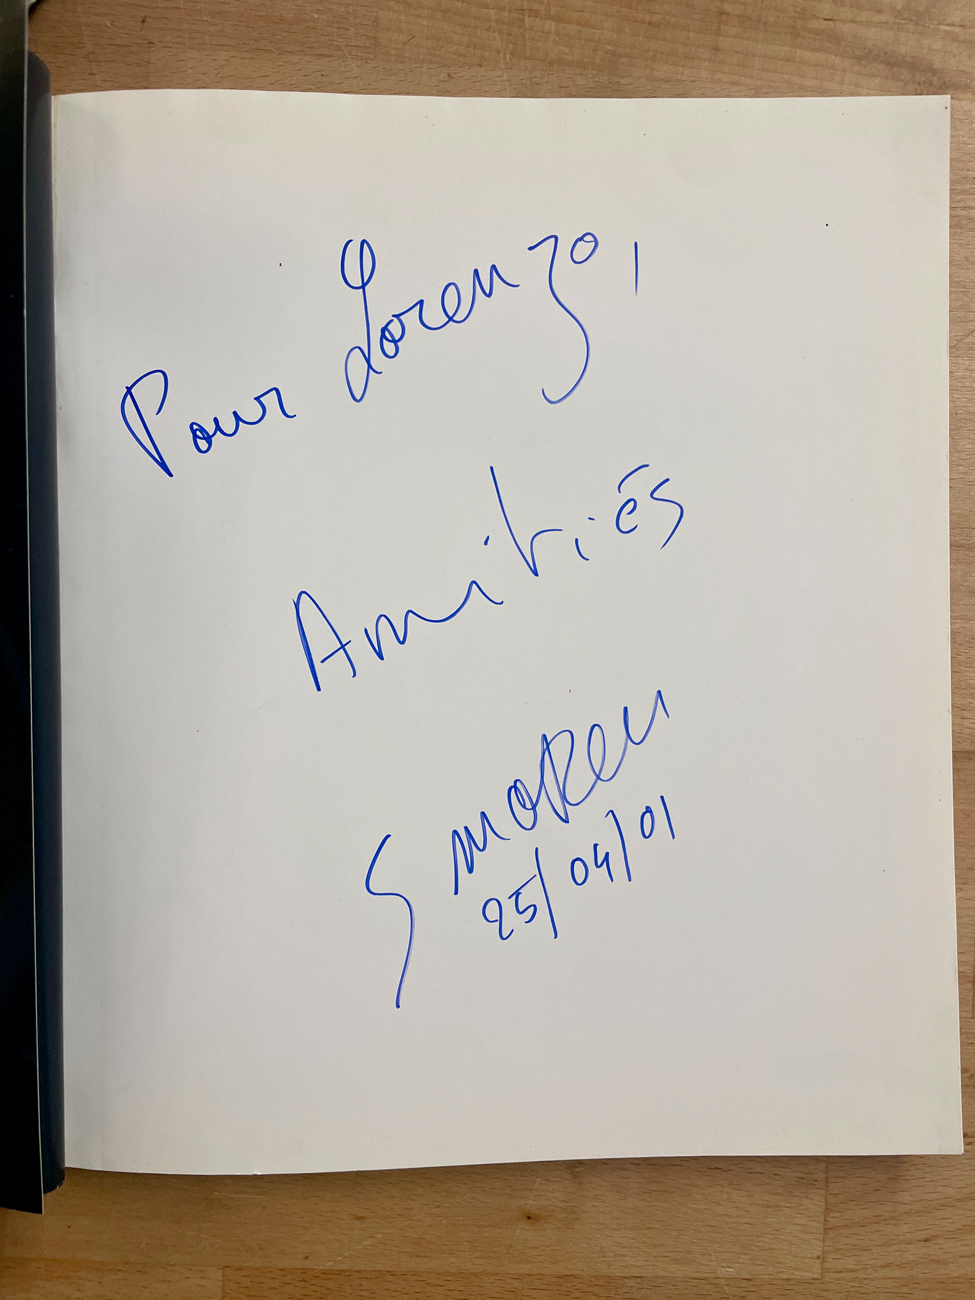 Pour Lorenzo,
Amitiés
Smoren
25/04/01